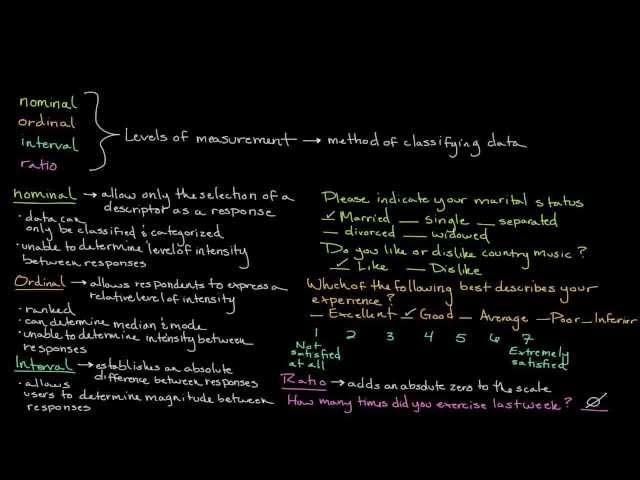 nominal
ordinal
interval
ratio
Levels of measurement → method of classifying data
nominal → allow only the selection of a
descriptor as a response
· data can
only be classified & categorized
· unable to determine level of intensity
between responses
Ordinal → allows respondents to express a
relative level of intensity
· ranked
· can determine median & mode
· unable to determine intensity between
responses
Interval → establishes an absolute
difference between responses
· allows
users to determine magnitude between
responses
Please indicate your marital status
✓ Married __ single __ separated
__ divorced __ widowed
Do you like or dislike country music?
✓ Like __ Dislike
Which of the following best describes your
experience?
__ Excellent ✓ Good __ Average __ Poor __ Inferior
1 2 3 4 5 6 7
Not satisfied at all
Extremely satisfied
Ratio → adds an absolute zero to the scale
How many times did you exercise last week? Ø